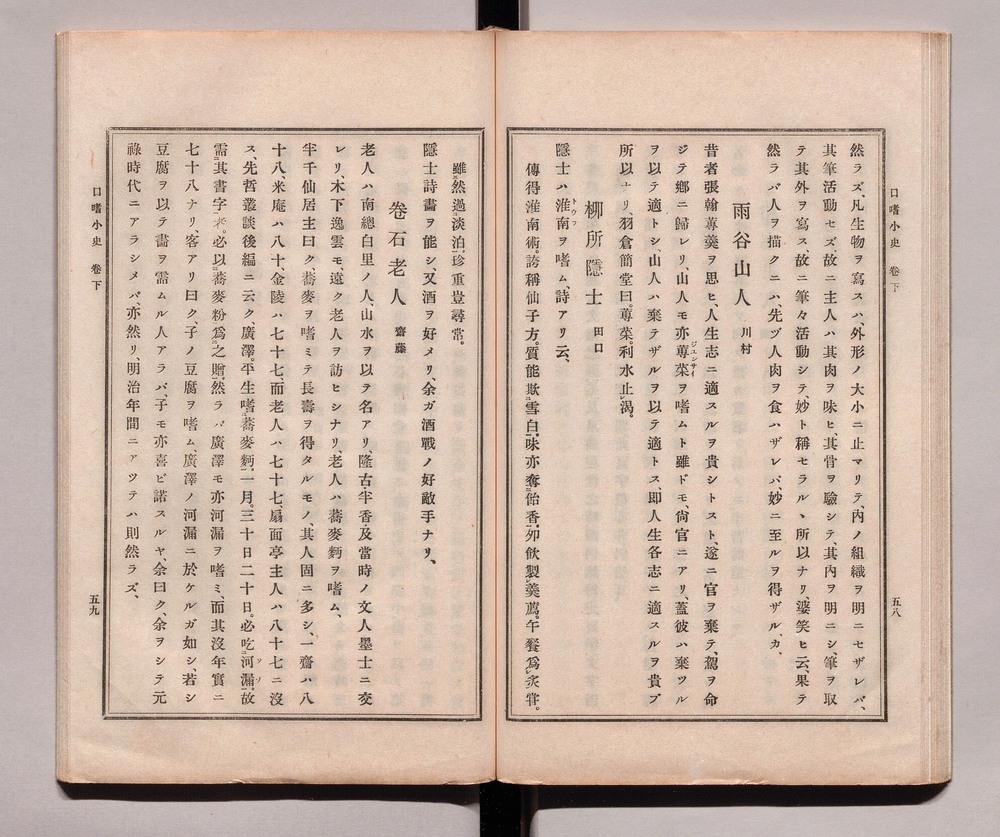 口嗜小史　卷下
五八
然ラズ、凡生物ヲ寫スハ、外形ノ大小ニ止マリテ、內ノ組織ヲ明ニセザレバ、
其筆活動セズ、故ニ主人ハ其肉ヲ味ヒ、其骨ヲ驗シテ、其內ヲ明ニシ、筆ヲ取
テ其外ヲ寫ス、故ニ筆々活動シテ、妙ト稱セラルヽ所以ナリ、婆笑ヒ云、果テ
然ラバ人ヲ描クニハ、先ヅ人肉ヲ食ハザレバ、妙ニ至ルヲ得ザルカ、
雨谷山人　川村
昔者張翰蓴羹ヲ思ヒ、人生志ニ適スルヲ貴シトスト、遂ニ官ヲ棄テ、駕ヲ命
ジテ鄕ニ歸レリ、山人モ亦蓴菜ヲ嗜ムト雖ドモ、尙官ニアリ、蓋彼ハ棄ツル
ジユンサイ
ヲ以テ適トシ、山人ハ棄テザルヲ以テ適トス、卽人生各志ニ適スルヲ貴ブ
所以ナリ、羽倉簡堂曰。蓴菜。利水止渴。
柳所隱士　田口
隱士ハ淮南ヲ嗜ム、詩アリ云、
トウフ
傳得淮南術。誇稱仙子方。質能欺雪白。味亦奪飴香。卯飮製羹薦。午餐爲炙甞。
雖然過淡泊。珍重豈尋常。
隱士詩畫ヲ能シ、又酒ヲ好メリ、余ガ酒戰ノ好敵手ナリ、
卷石老人　齋藤
老人ハ南總白里ノ人、山水ヲ以テ名アリ、隆古、半香、及當時ノ文人墨士ニ交
レリ、木下逸雲モ、遠ク老人ヲ訪ヒシナリ、老人ハ蕎麥麪ヲ嗜ム、
半千仙居主曰ク、蕎麥ヲ嗜ミテ長壽ヲ得タルモノ、其人固ニ多シ、一齋ハ八
十八、米庵ハ八十、金陵ハ七十七、而老人ハ七十七、扇面亭主人ハ八十七ニ沒
ス、先哲叢談後編ニ云ク、廣澤。平生嗜蕎麥麪。一月。三十日二十日。必吃河漏。故
ソソ
需其書字者。必以蕎麥粉爲之贈。然ラバ廣澤モ亦河漏ヲ嗜ミ、而其沒年實ニ
七十八ナリ、客アリ曰ク、子ノ豆腐ヲ嗜ム、廣澤ノ河漏ニ於ケルガ如シ、若シ
豆腐ヲ以テ畫ヲ需ムル人アラバ、子モ亦喜ビ諾スルヤ、余曰ク余ヲシテ元
祿時代ニアラシメバ、亦然リ、明治年間ニアツテハ則然ラズ、
口嗜小史　卷下
五九